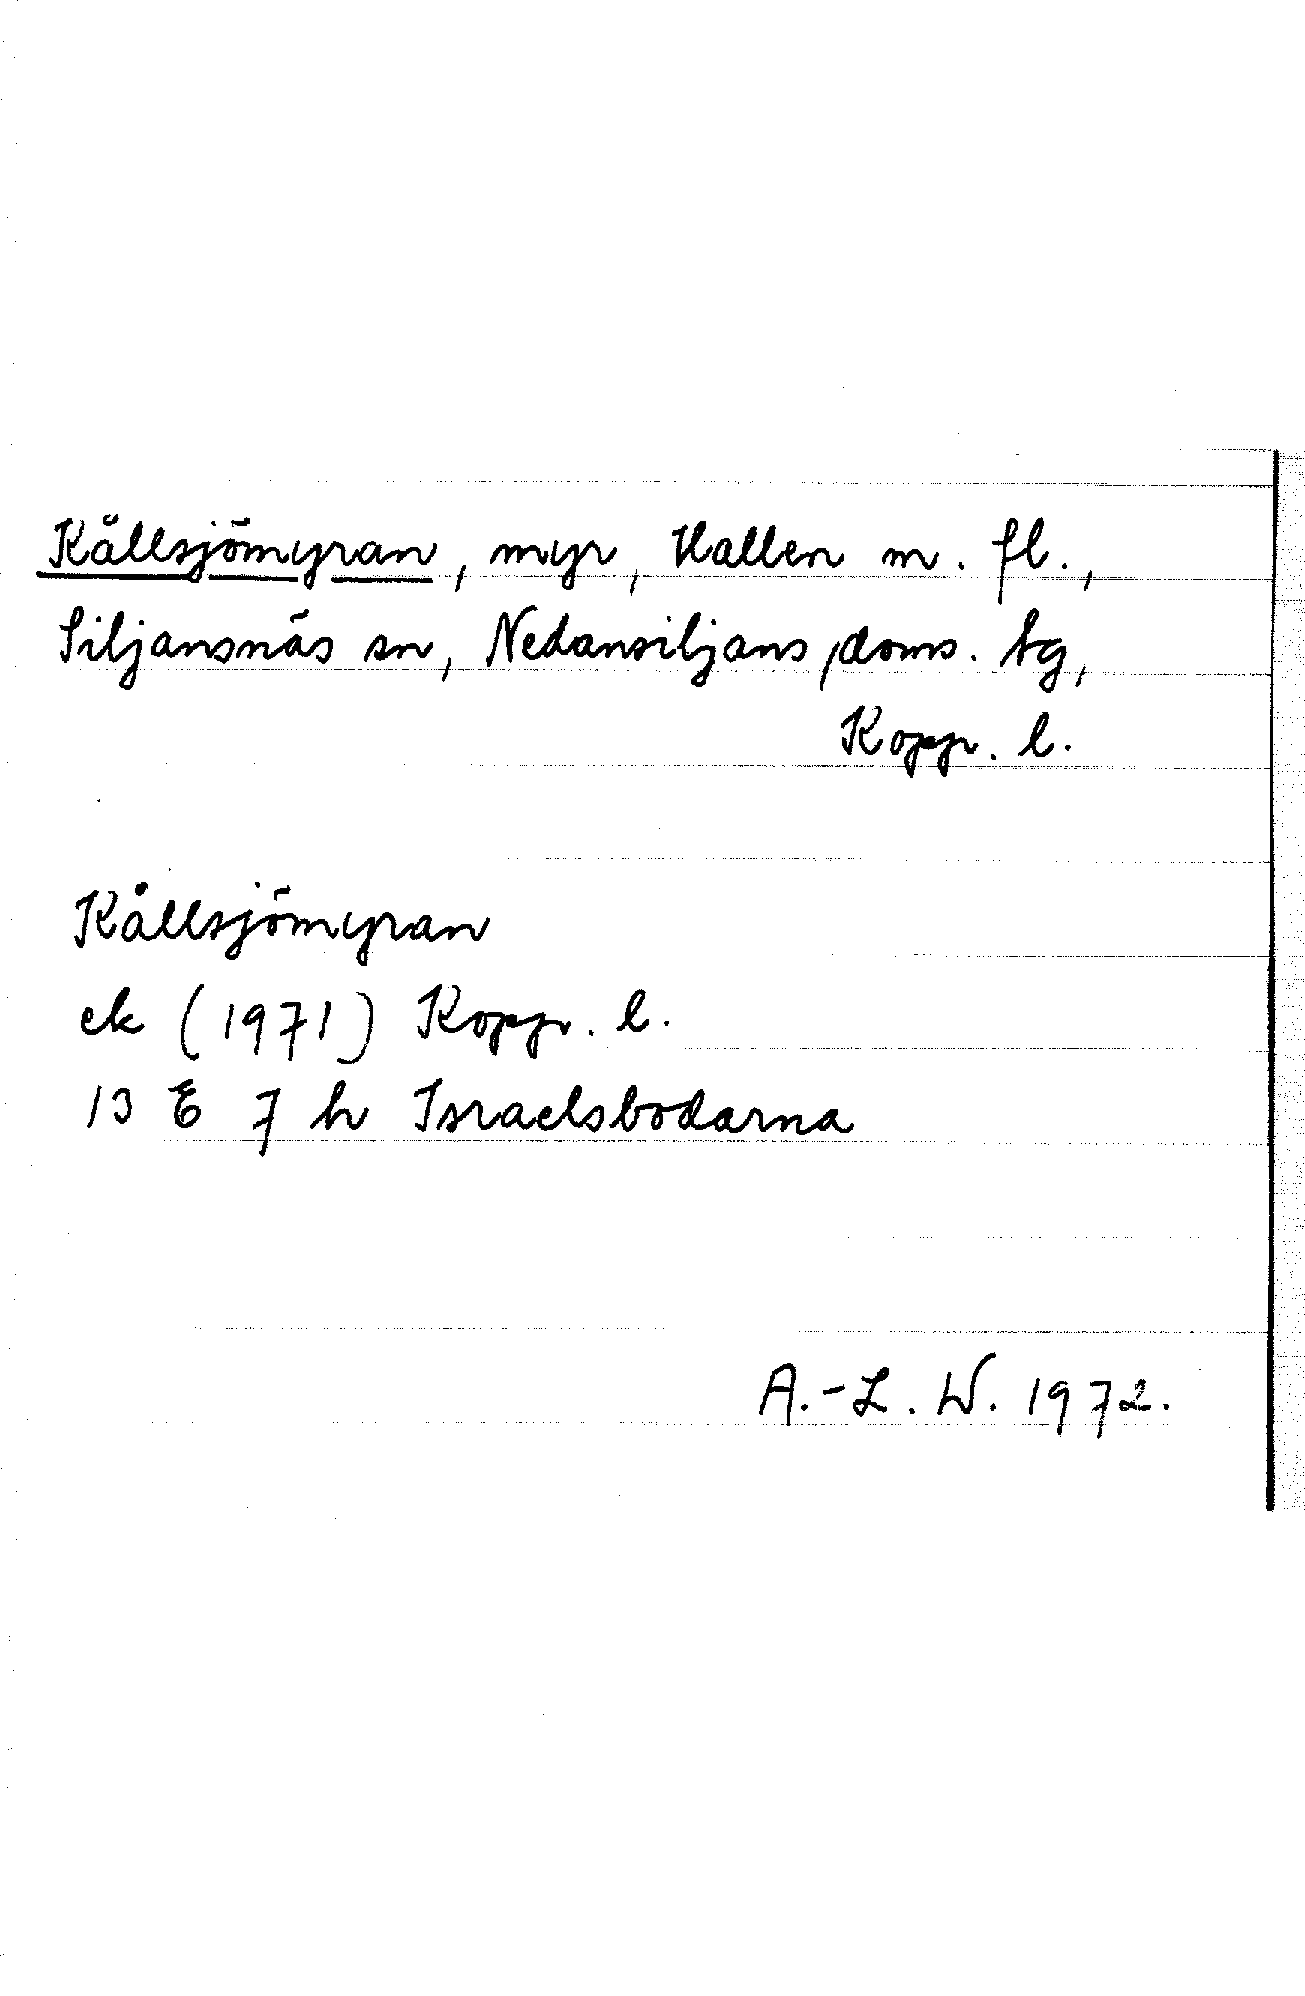 Källsjömyran, myr, Hallen m. fl.,
Siljansnäs sn, Nedansiljans doms. tg,
Kopp. l.
Källsjömyran
ek (1971) Kopp. l.
13 E 7 h Israelsbodarna
A.-L. W. 1972.